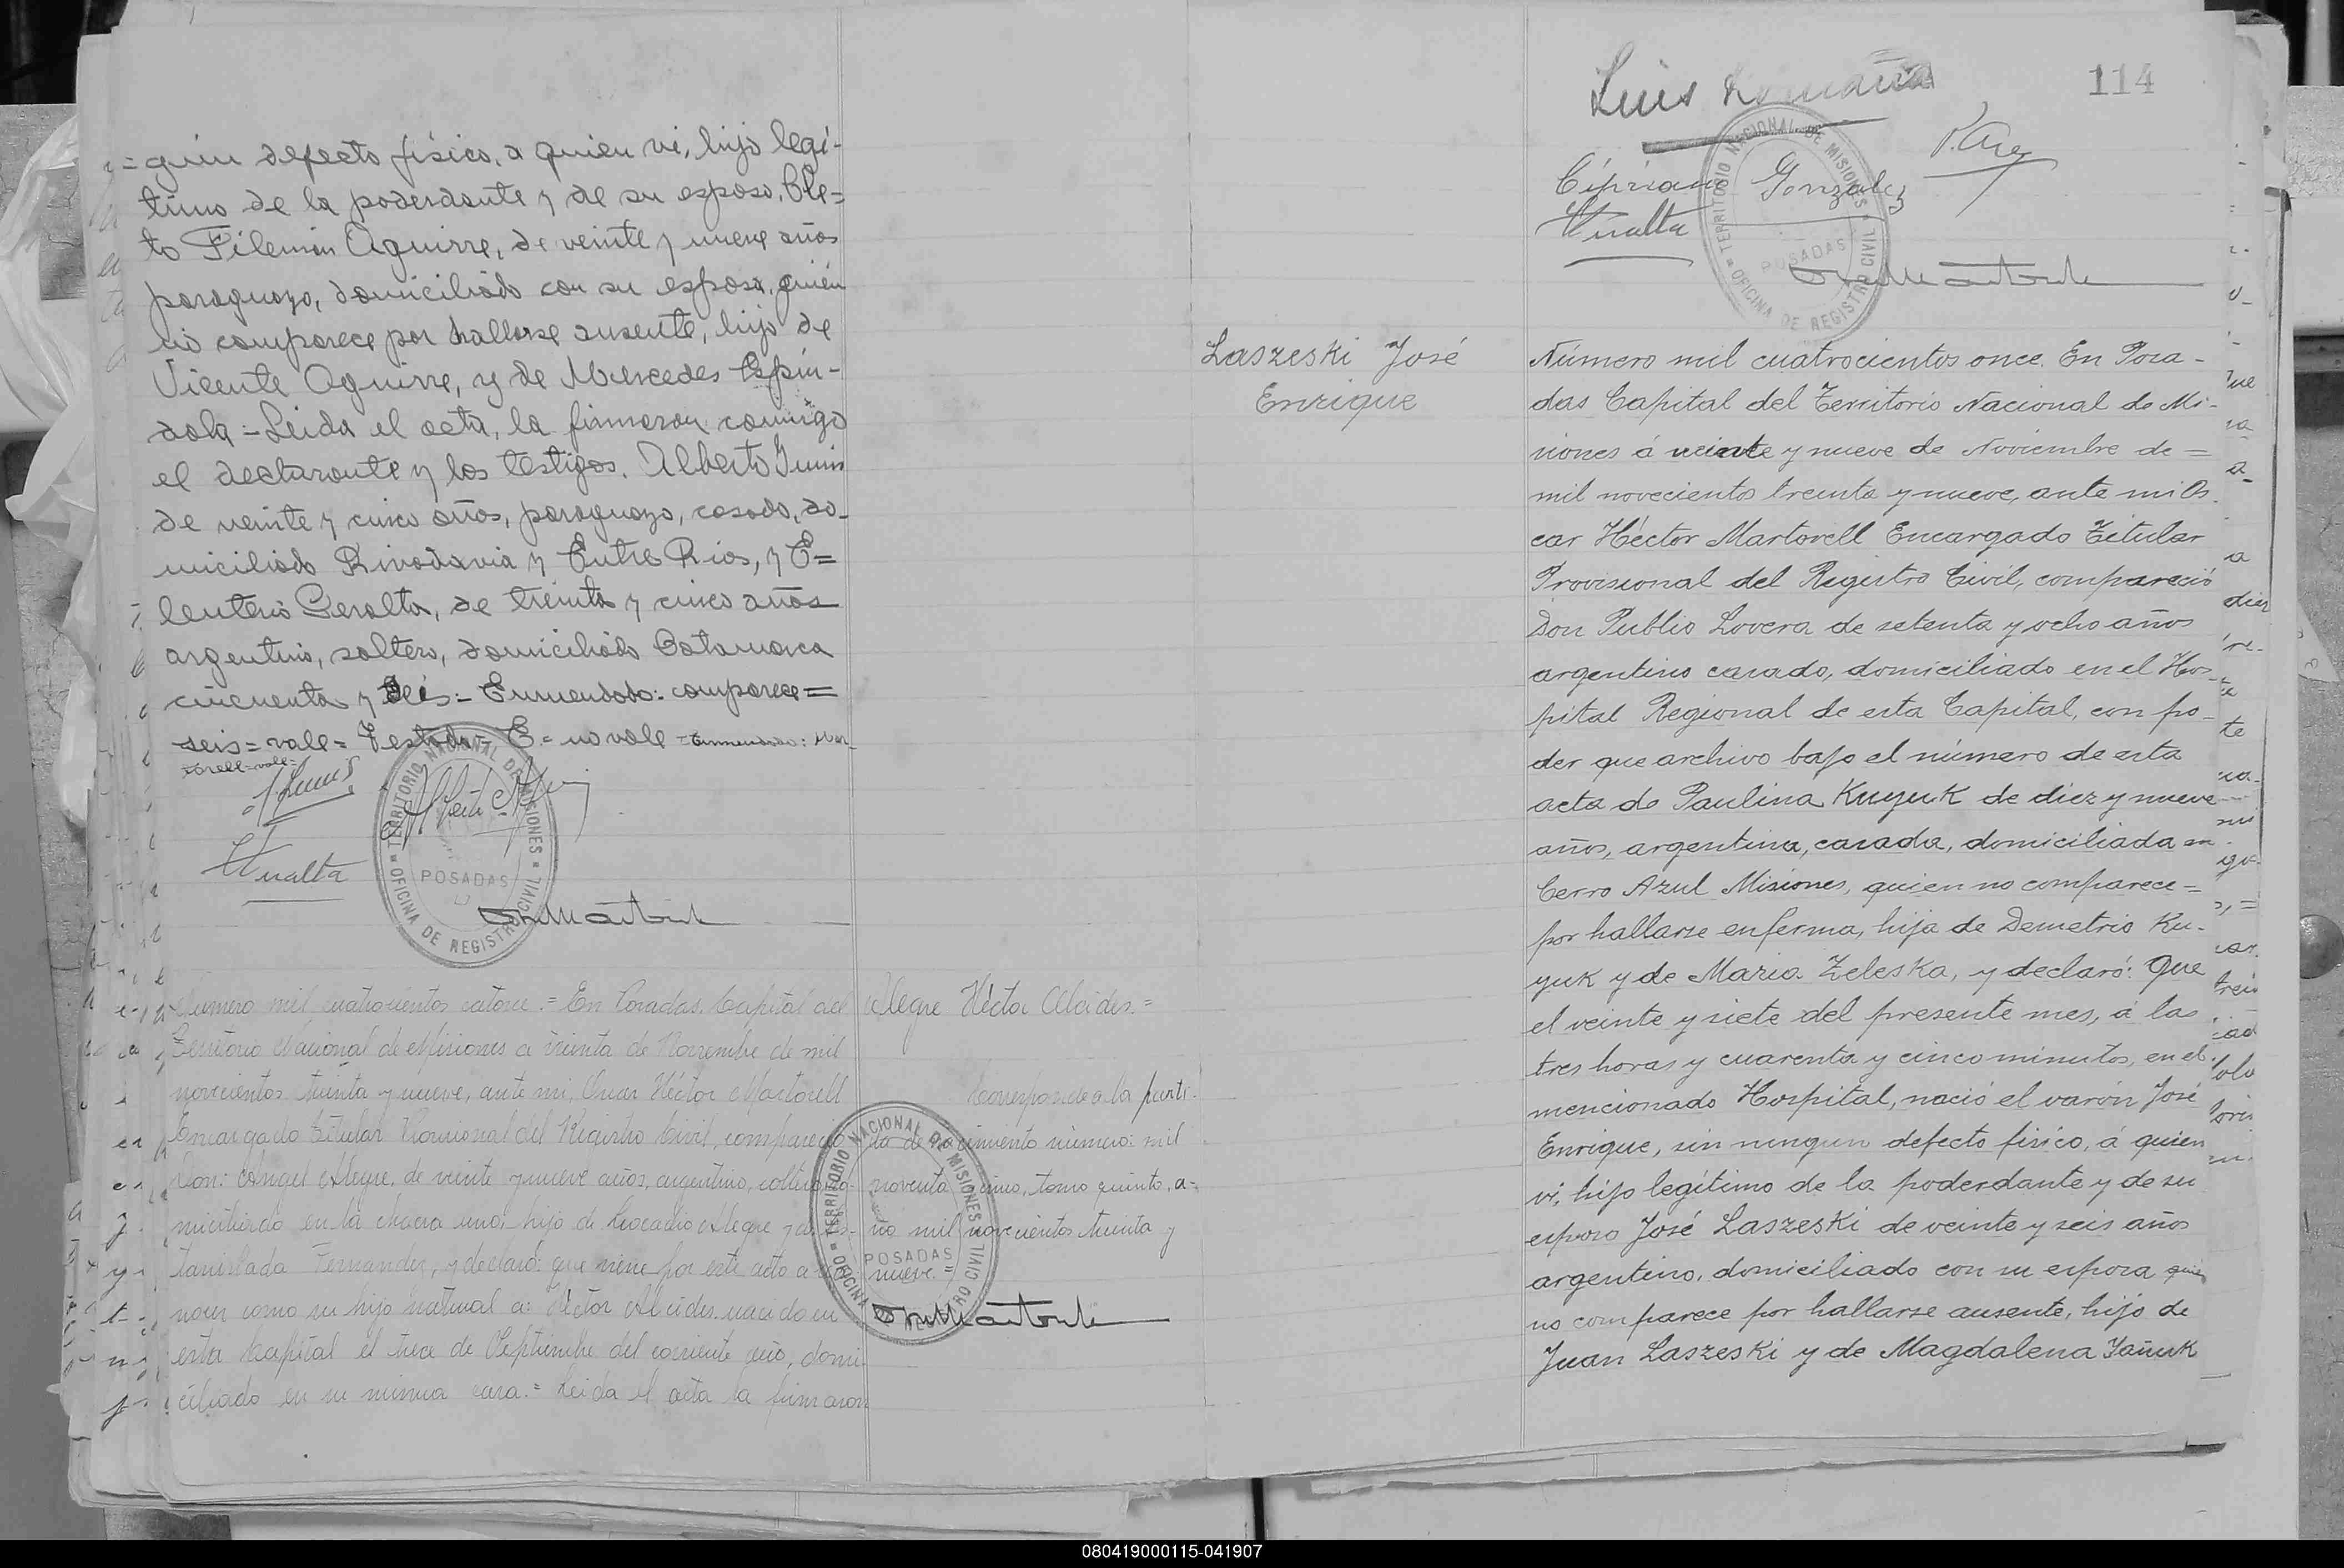 gun defecto físico, a quien vi, hijo legí-
timo de la poderdante y de su esposo, Cle-
to Filemón Aguirre, de veinte y nueve años
paraguayo, domiciliado con su esposa, quién
no comparece por hallarse ausente, hijo de
Vicente Aguirre, y de Mercedes Espín-
dola = Leida el acta, la firmaron conmigo
el declarante y los testigos. Alberto
de veinte y cinco años, paraguayo, casado, do-
miciliado Rivadavia y Entre Rios, y E=
leuterio Peralta, de treinta y cinco años
argentino, soltero, domiciliado Catamarca
cincuenta y seis = Enmendado: comparece =
seis = vale = Testado = E = no vale = Enmendado: Mar-
torell = vale =
TERRITORIO NACIONAL DE MISIONES
POSADAS
OFICINA DE REGISTRO CIVIL
Número mil cuatrocientos catorce. = En Posadas, Capital del
Territorio Nacional de Misiones a treinta de Noviembre de mil
novecientos treinta y nueve, ante mi, Oscar Héctor Martorell
Encargado Titular Provisional del Registro Civil, compareció
Don: Angel Alegre, de veinte y nueve años, argentino, soltero, do-
miciliado en la chacra uno, hijo de Leocadio Alegre y de Es-
tanislada Fernandez, y declaró: que viene por este acto a reco-
nocer como su hijo natural a: Héctor Alcides, nacido en
esta Capital el trece de Septiembre del corriente año, domi-
ciliado en su misma casa. = Leida el acta la firmaron
Alegre Héctor Alcides. =
Corresponde a la parti-
da de nacimiento número: mil
noventa cinco, tomo quinto, a-
ño mil novecientos treinta y
nueve. =
TERRITORIO NACIONAL DE MISIONES
POSADAS
OFICINA DE REGISTRO CIVIL
114
Luis Romaña
Cipriano Gonzalez
TERRITORIO NACIONAL DE MISIONES
POSADAS
OFICINA DE REGISTRO CIVIL
Laszeski José
Enrique
Número mil cuatrocientos once. En Posa-
das Capital del Territorio Nacional de Mi-
siones á veinte y nueve de Noviembre de =
mil novecientos treinta y nueve, ante mi Os-
car Héctor Martorell Encargado Titular
Provisional del Registro Civil, compareció
Don Publio Lovera de setenta y ocho años
argentino casado, domiciliado en el Hos-
pital Regional de esta Capital, con po-
der que archivo bajo el número de esta
acta de Paulina Kuyuk de diez y nueve
años, argentina, casada, domiciliada en
Cerro Azul Misiones, quien no comparece =
por hallarse enferma, hija de Demetrio Ku-
yuk y de Maria Zeleska, y declaró: Que
el veinte y siete del presente mes, á las
tres horas y cuarenta y cinco minutos, en el
mencionado Hospital, nació el varón José
Enrique, sin ningun defecto fisico, á quien
vi, hijo legítimo de la poderdante y de su
esposo José Laszeski de veinte y seis años
argentino, domiciliado con su esposa quien
no comparece por hallarse ausente, hijo de
Juan Laszeski y de Magdalena Yañuk
080419000115-041907